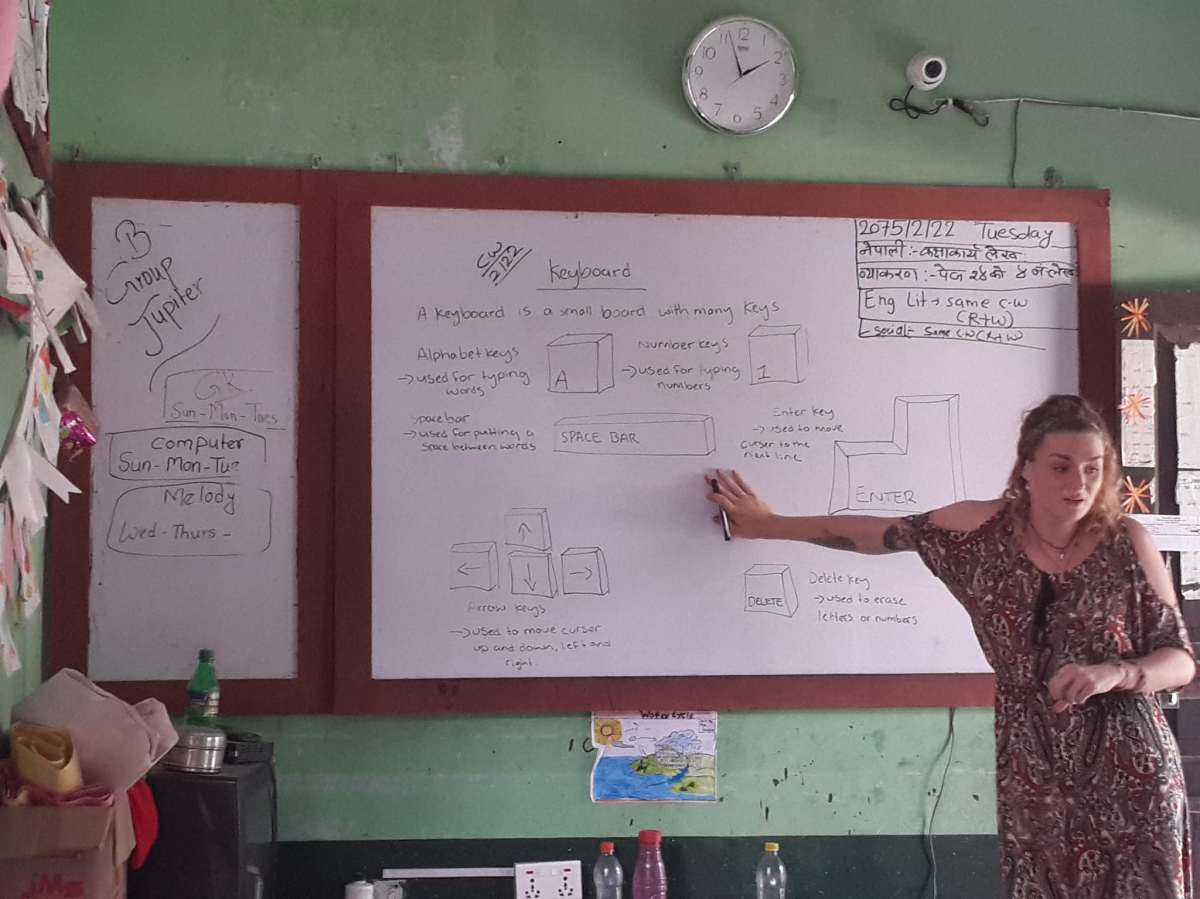 B-
Group
Jupiter
G.K.
Sun-Mon-Tues
Computer
Sun-Mon-Tue
Melody
Wed-Thurs-
CW
2/22
Keyboard
A keyboard is a small board with many keys
Alphabet keys
→ used for typing
words
A
Number keys
→ used for typing
numbers
1
Space bar
→ used for putting a
space between words
SPACE BAR
Enter key
→ used to move
cursor to the
next line
ENTER
↑
← ↓ →
Arrow keys
→ used to move cursor
up and down, left and
right.
DELETE
Delete key
→ used to erase
letters or numbers
2075/2/22 Tuesday
नेपाली :- कक्षाकार्य लेख
व्याकरण :- पेज २४ को ४ नं लेख
Eng Lit → same c.w
(R+W)
- social - same c.w (R+W)
Water Cycle
12
1
2
3
4
5
6
7
8
9
10
11